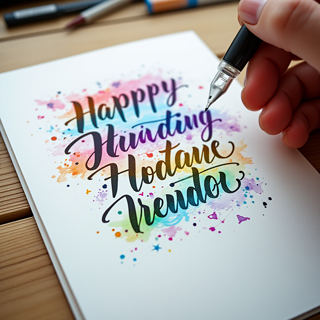 Happpy
Hunding
Hodane
Vrendor